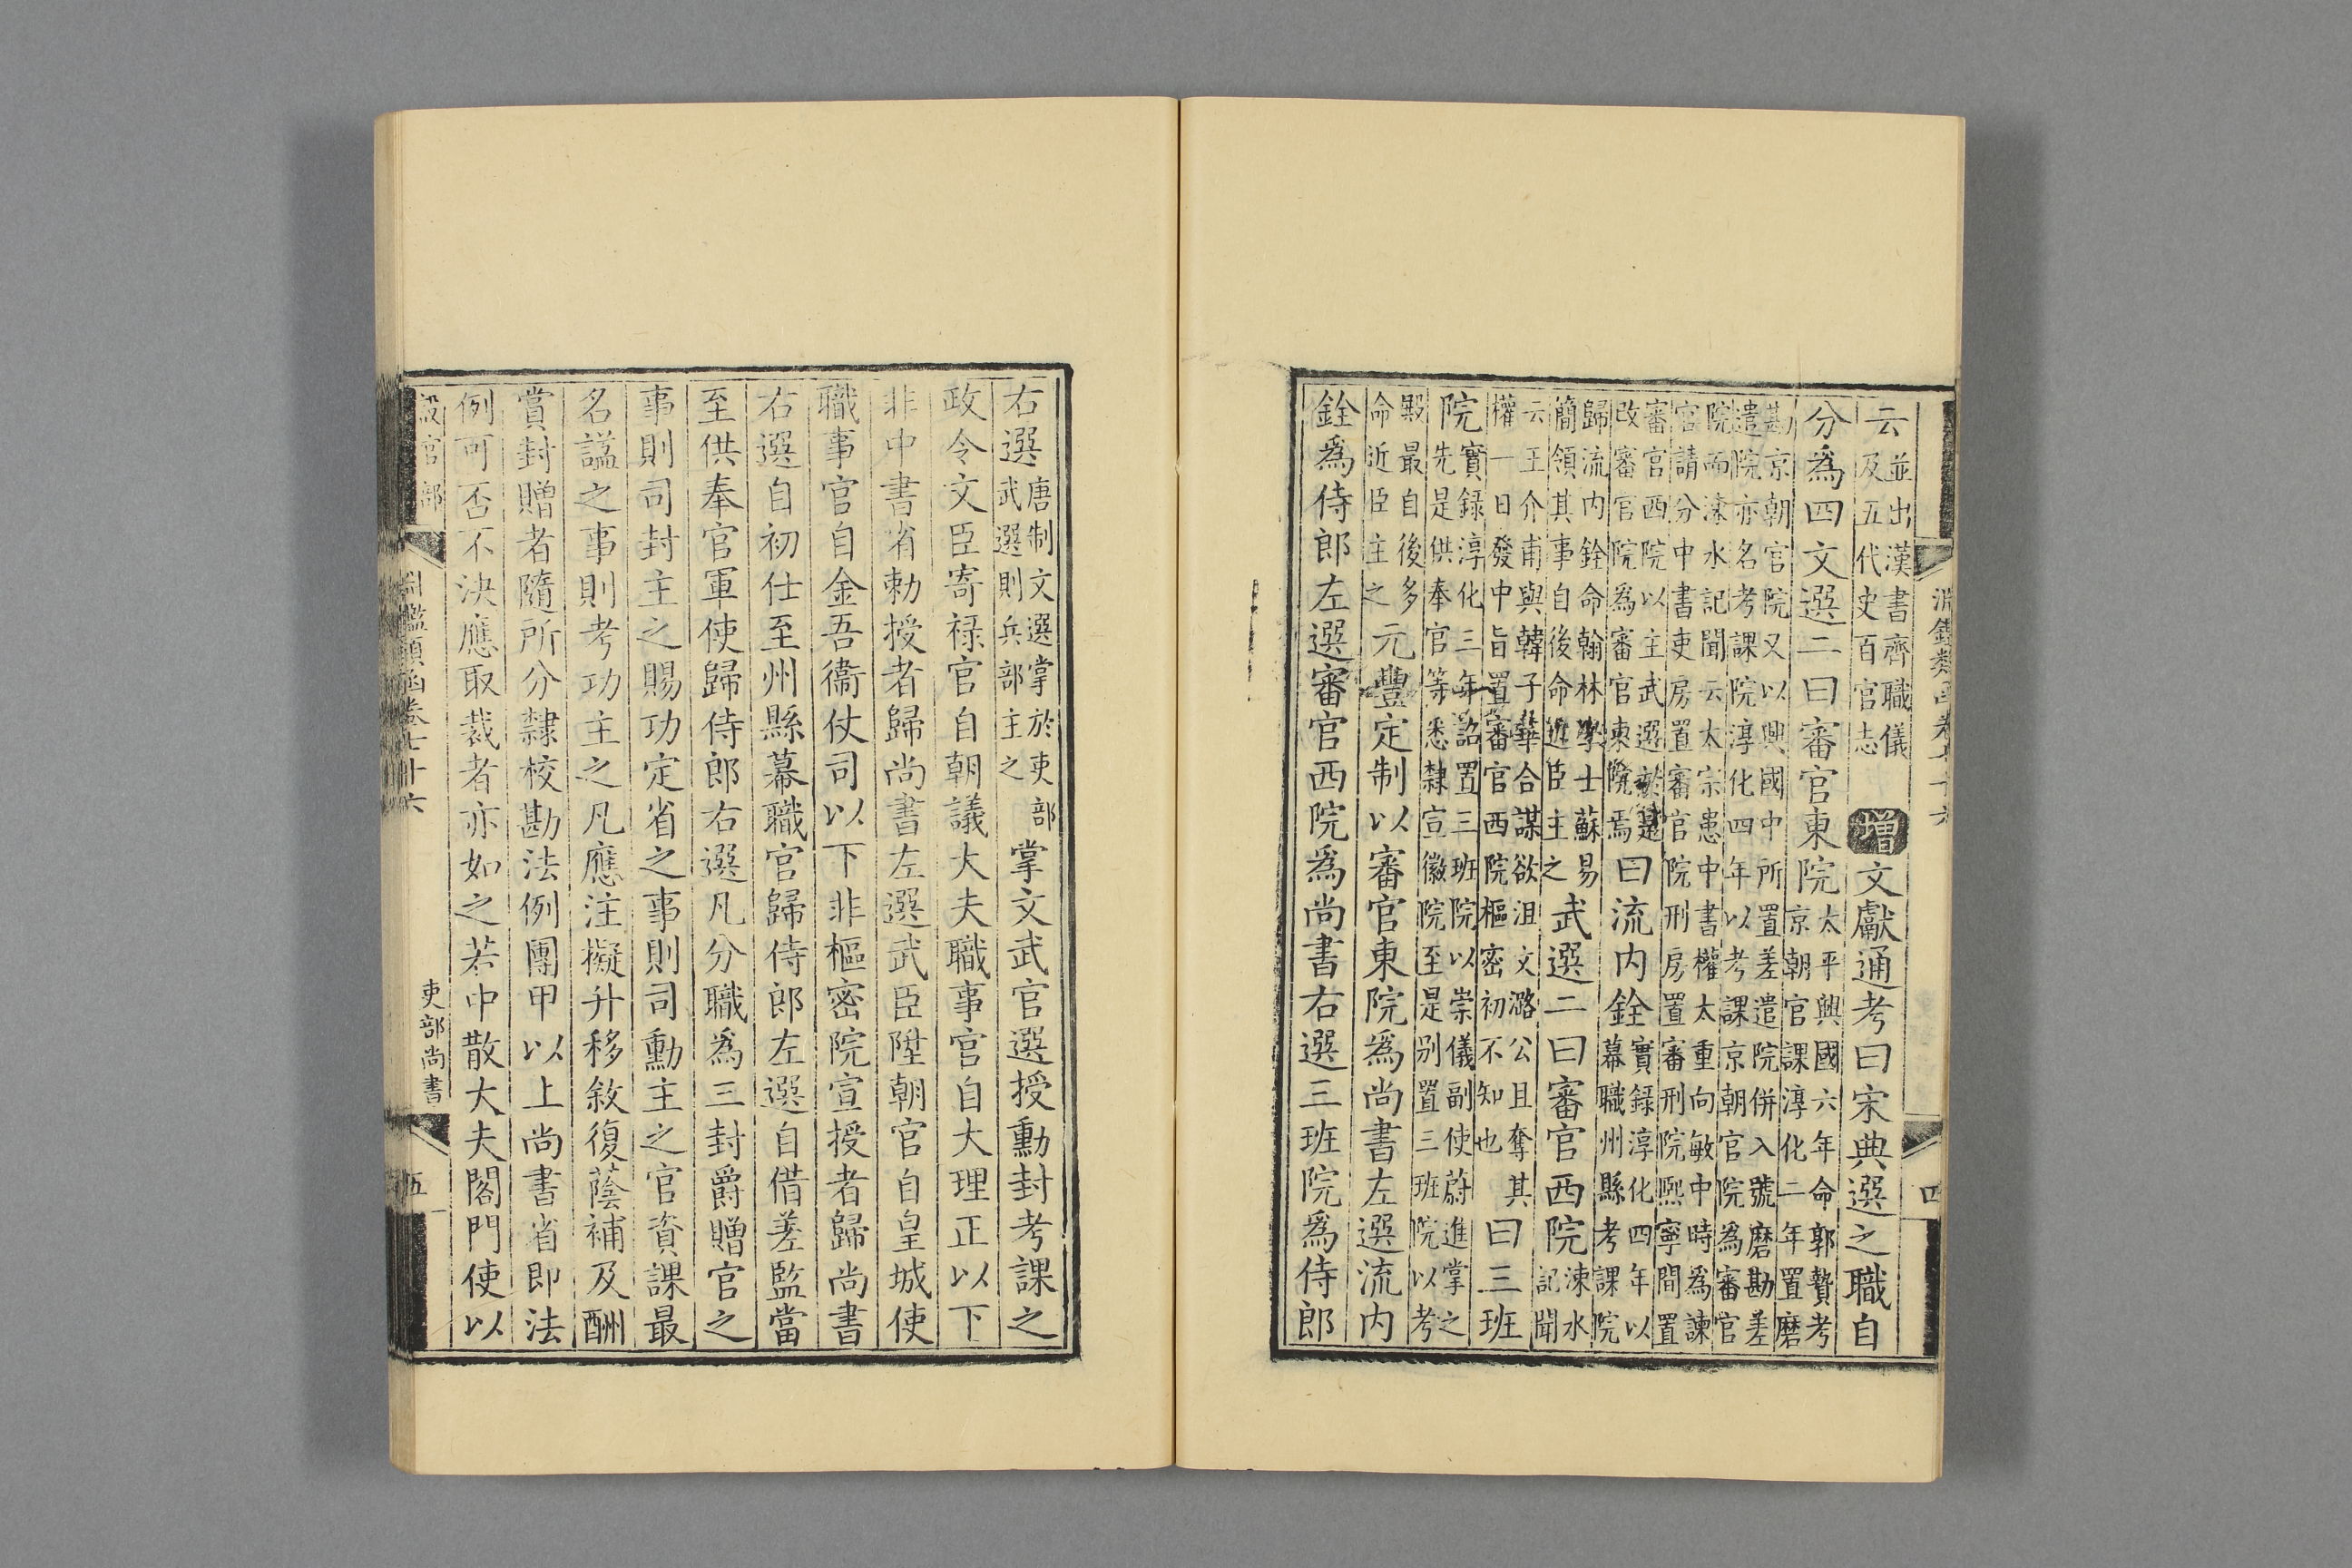 淵鑑類函卷七十六
四
云並出漢書齊職儀及五代史百官志增文獻通考曰宋典選之職自
分為四文選二曰審官東院太平興國六年命郭贄考京朝官課淳化二年置磨
勘京朝官院又以興國中所置差遣院併入號磨勘差
遣院亦名考課院淳化四年以考課京朝官院為審官
院而涑水記聞云太宗患中書權太重向敏中時為諫
官請分中書吏房置審官院刑房置審刑院熙寧間置
審官西院以主武選於是改審官院為審官東院焉曰流内銓實録淳化四年以幕職州縣考課院
歸流内銓命翰林學士蘇易簡領其事自後命近臣主之武選二曰審官西院涑水記聞
云王介甫與韓子華合謀欲沮文潞公且奪其權一日發中旨置審官西院樞密初不知也曰三班
院實録淳化三年詔置三班院以崇儀副使蔚進掌之先是供奉官等悉隸宣徽院至是别置三班院以考
殿最自後多命近臣主之元豐定制以審官東院為尚書左選流内
銓為侍郎左選審官西院為尚書右選三班院為侍郎
右選唐制文選掌於吏部武選則兵部主之掌文武官選授勳封考課之
政令文臣寄禄官自朝議大夫職事官自大理正以下
非中書省勅授者歸尚書左選武臣陞朝官自皇城使
職事官自金吾衞仗司以下非樞密院宣授者歸尚書
右選自初仕至州縣幕職官歸侍郎左選自借差監當
至供奉官軍使歸侍郎右選凡分職為三封爵贈官之
事則司封主之賜功定省之事則司勳主之官資課最
名諡之事則考功主之凡應注擬升移敘復蔭補及酬
賞封贈者隨所分隸校勘法例團甲以上尚書省即法
例可否不決應取裁者亦如之若中散大夫閣門使以
設官部
淵鑑類函卷七十六
吏部尚書
五